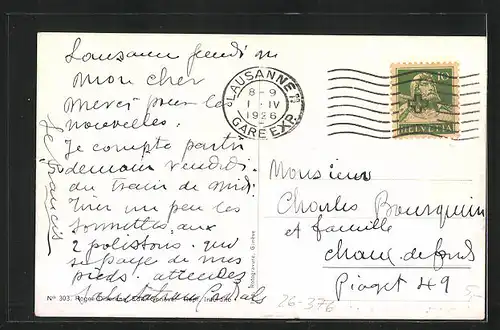 Lausanne jeudi
Mon cher
Merci pour les
nouvelles.
Je compte partir
demain vendredi
du train de midi
Tirer un peu les
sonnettes aux
2 polissons qui
se paye de mes
pieds. attendez
Salutations Cordiales
Je Francis
LAUSANNE
8-9
1·IV
1926
GARE EXP.
10
HELVETIA
Monsieur
Charles Bourquin
et famille
Chaux de fonds
Piaget 49
26-376
5,-
No 303.
Genève